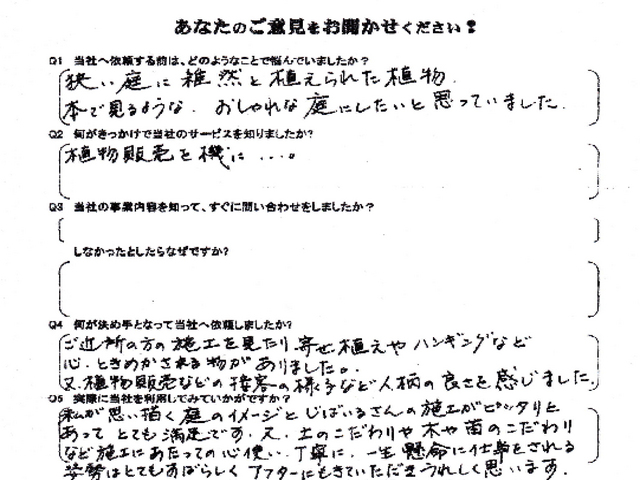 あなたのご意見をお聞かせください！
Q1 当社へ依頼する前は、どのようなことで悩んでいましたか？
狭い庭に雑然と植えられた植物.
本で見るような. おしゃれな庭にしたいと思っていました.
Q2 何がきっかけで当社のサービスを知りましたか？
植物販売を機に....。
Q3 当社の事業内容を知って、すぐに問い合わせをしましたか？
しなかったとしたらなぜですか?
Q4 何が決め手となって当社へ依頼しましたか?
ご近所の方の施工を見たり寄せ植えやハンギングなど
心.ときめかされる物がありました。
又.植物販売などの接客の様子など人柄の良さを感じました.
Q5 実際に当社を利用してみていかがですか？
私が思い描く庭のイメージとじばいるさんの施工がピッタリと
あってとても満足です.又.土のこだわりや木や苗のこだわり
など施工にあたっての心使い.丁寧に.一生懸命に仕事をされる
姿勢はとてもすばらしくアフターにもきていただきうれしく思います.